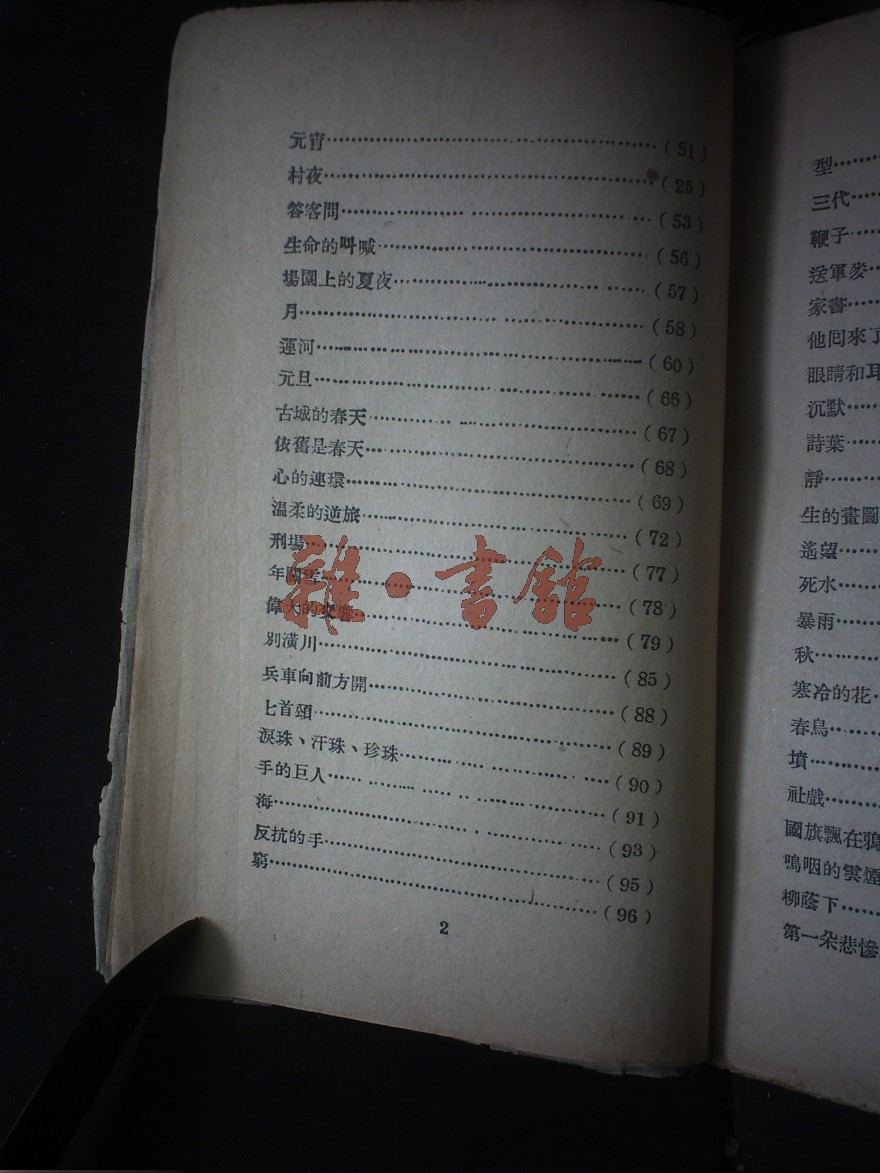 元宵……(51)
村夜……(25)
答客問……(53)
生命的叫喊……(56)
場園上的夏夜……(57)
月……(58)
運河……(60)
元旦……(66)
古城的春天……(67)
依舊是春天……(68)
心的連環……(69)
溫柔的逆旅……(72)
刑場……(77)
年關雪……(78)
偉大的交響……(79)
別潢川……(85)
兵車向前方開……(88)
匕首頌……(89)
淚珠、汗珠、珍珠……(90)
手的巨人……(91)
海……(93)
反抗的手……(95)
窮……(96)
2
雜·書館
型……
三代……
鞭子……
送軍麥……
家書……
他回來了
眼睛和耳
沉默……
詩葉……
靜……
生的畫圖
遙望……
死水……
暴雨……
秋……
寒冷的花
春鳥……
墳……
社戲……
國旗飄在鴉
嗚咽的雲煙
柳蔭下……
第一朵悲慘